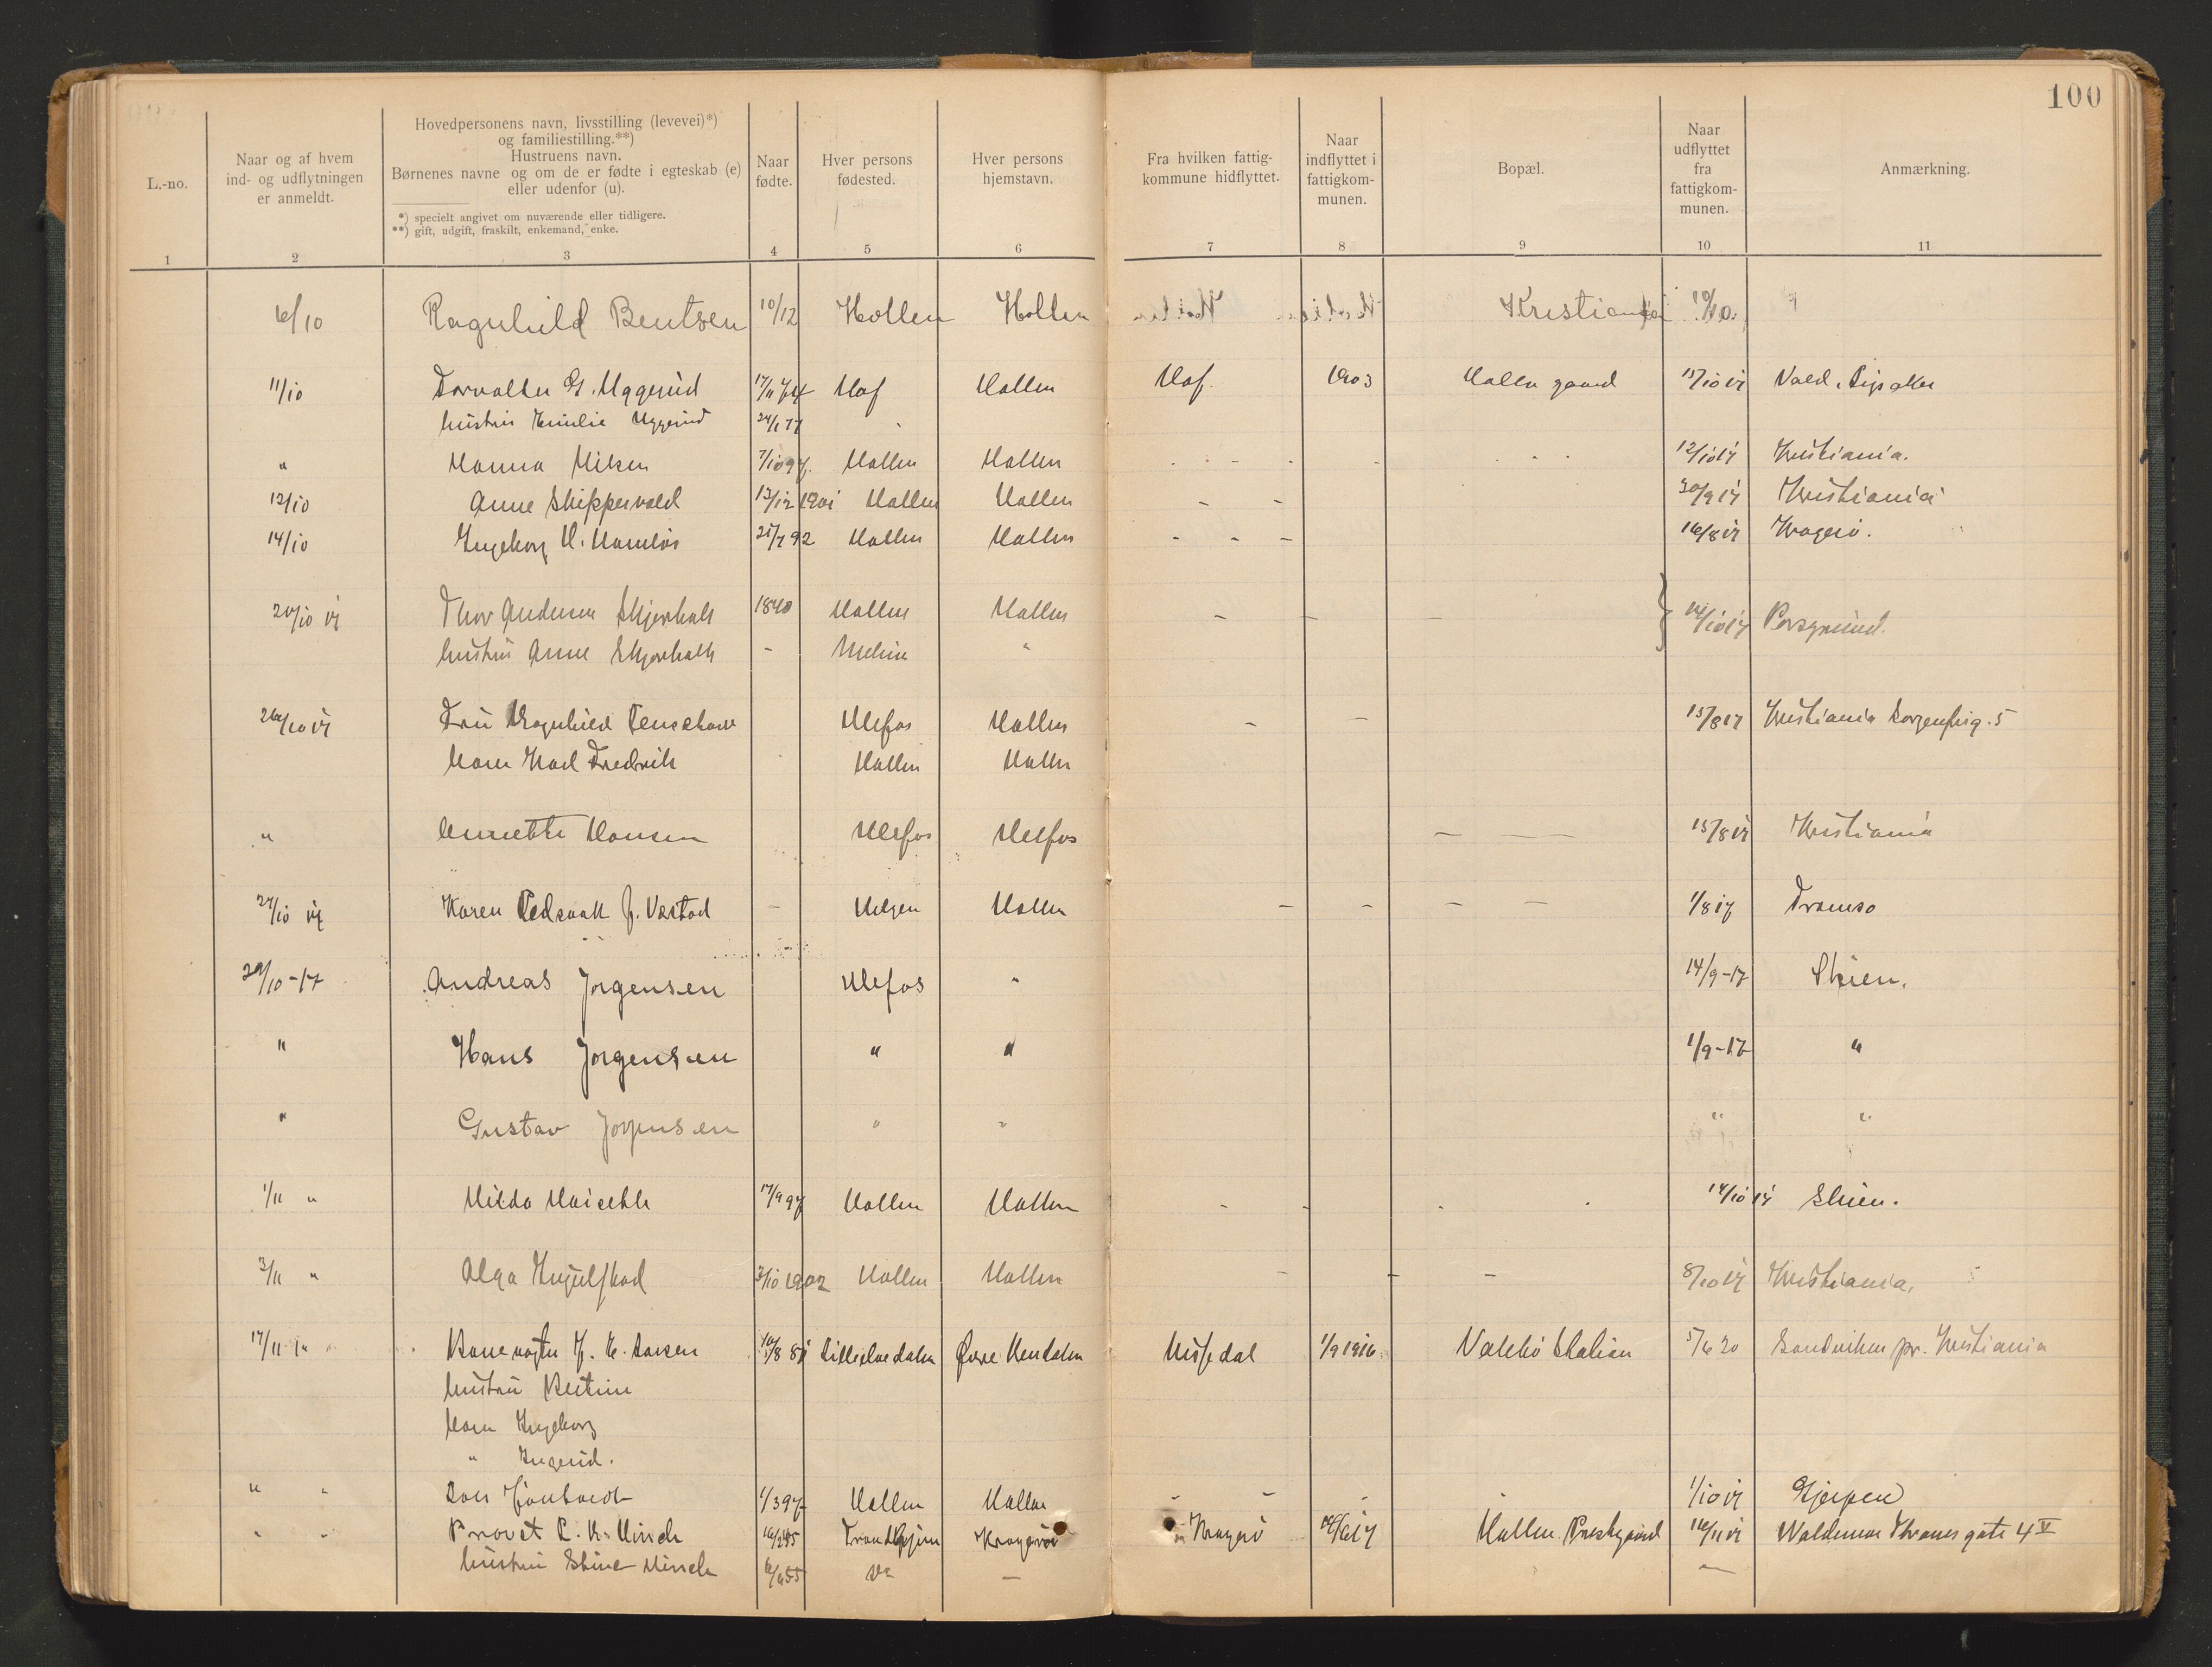 100
L.-no.
Naar og af hvem ind- og udflytningen er anmeldt.
Hovedpersonens navn, livsstilling (levevei)*) og familiestilling.**)
Hustruens navn.
Børnenes navne og om de er fødte i egteskab (e) eller udenfor (u).
*) specielt angivet om nuværende eller tidligere.
**) gift, udgift, fraskilt, enkemand, enke.
Naar fødte.
Hver persons fødested.
Hver persons hjemstavn.
Fra hvilken fattigkommune hidflyttet.
Naar indflyttet i fattigkommunen.
Bopæl.
Naar udflyttet fra fattigkommunen.
Anmærkning.
1 2 3 4 5 6 7 8 9 10 11
6/10 Ragnhild Bentsen 10/12 Hollen Hollen Kristiania
11/10 Forvalter G. Uggerud 17/11 74 Hof Hollen Hof. 1903 Hollen gaard 15/10 17 Vold, Ringsaker
hustru Emilie Uggerud 24/1 77
" Hanna Nilsen 7/10 97 Hollen Hollen - - - 12/10 17 Kristiania.
12/10 Anne Skippervold 13/12 1901 Hollen Hollen - - 30/9 17 Kristiania
14/10 Ingeborg H. 92 Hollen Hollen - - - 16/8 17 Kragerø.
20/10 17 Thor Andersen Skjerkholt 1840 Hollen Hollen - - - 14/10 17 Porsgrund.
hustru Anne Skjerkholt - "
26/10 17 Fru Ragnhild Ulefos Hollen - - 15/8 17 Kristiania Sorgenfrig. 5
barn Karl Fredrik Hollen Hollen
" Hansen Ulefos Ulefos - - - 15/8 17 Kristiania
27/10 17 Karen f. Vastad - Helgen Hollen - - - - 1/8 17 Tromsø
29/10-17 Andreas Jørgensen Ulefos " 14/9-17 Skien.
" Hans Jørgensen " " 1/9-17 "
" Gustav Jørgensen " " " "
1/11 " Hilda 17/9 97 Hollen Hollen - - - - 14/10 17 Skien.
3/11 " Olga 3/10 1902 Hollen Hollen - - - 8/10 17 Kristiania.
17/11 " Banevogter Larsen 10/8 81 Lilleelvedalen Øvre Rendalen Nissedal 1/9 1916 Nakksjø Station 5/6 20 Sandviken pr. Kristiania
hustru
barn Ingeborg
" Ingerid.
" " 1/3 97 Hollen Hollen - - - - 1/10 17 Gjerpen
" " Provst Hirsch 45 Trondhjem Kragerø Kragerø Hollen Prestegaard 16/11 17 Waldemar Thranes gate 4 V
hustru Stine Hirsch 6/6 55 -